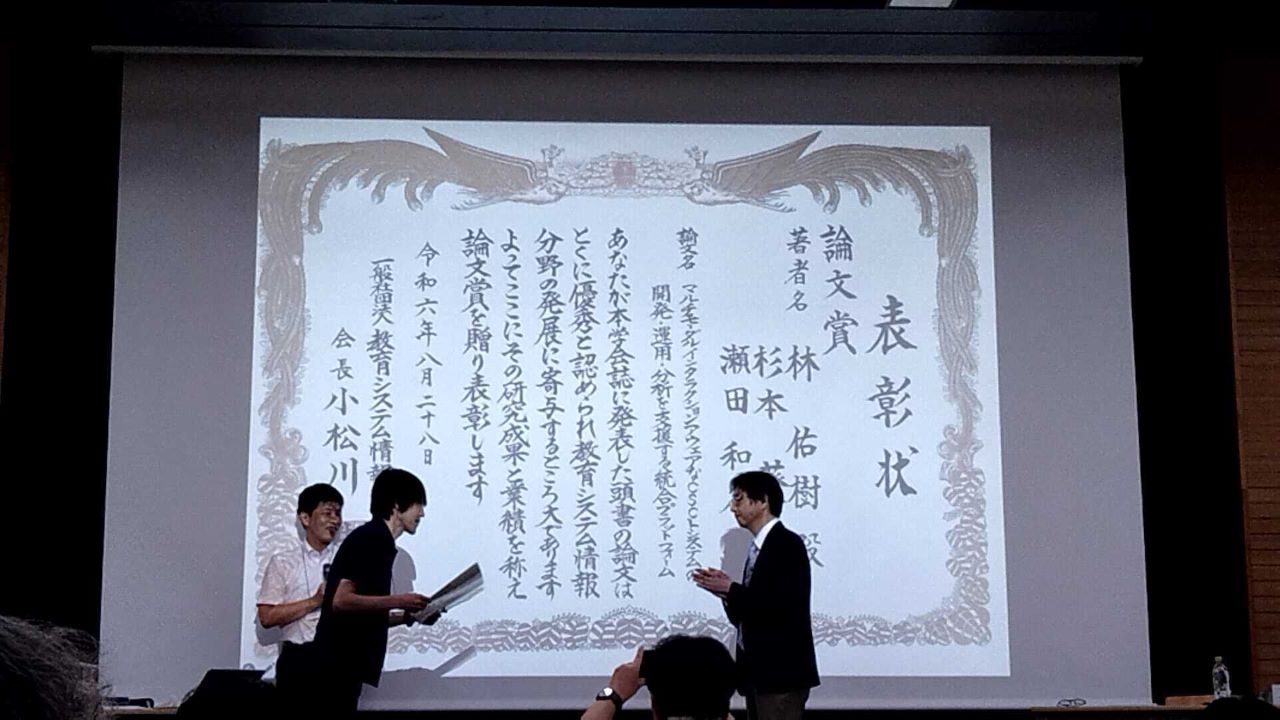 表彰状
論文賞
著者名 林 佑樹 殿
杉本 葵
瀬田 和
論文名 マルチモーダルインタラクションアウェアなCSCLシステムの
開発・運用・分析を支援する統合プラットフォーム
あなたが本学会誌に発表した頭書の論文は
とくに優秀と認められ教育システム情報
分野の発展に寄与するところ大であります
よってここにその研究成果と業績を称え
論文賞を贈り表彰します
令和六年八月二十八日
一般社団法人 教育システム情報
会長 小松川